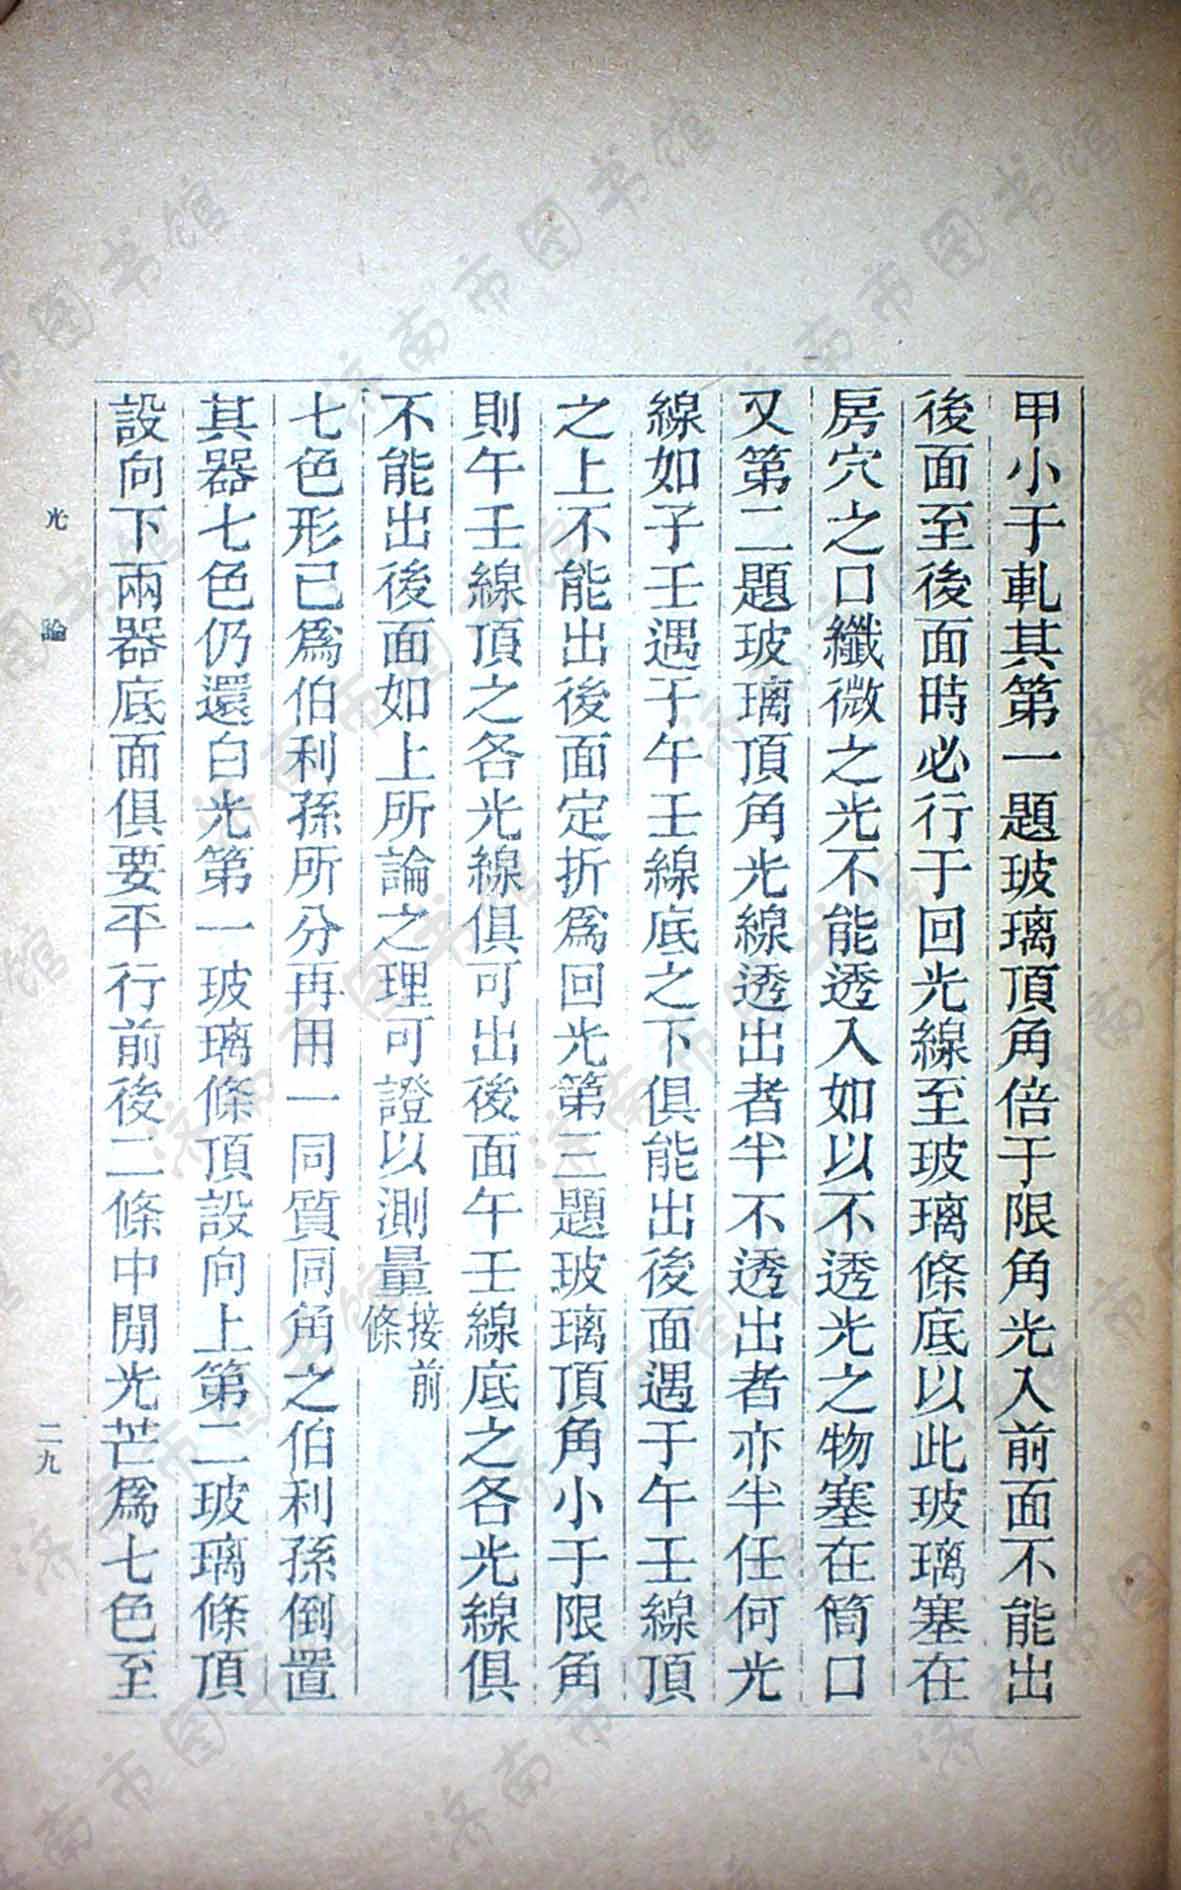 甲小于軋其第一題玻璃頂角倍于限角光入前面不能出
後面至後面時必行于回光線至玻璃條底以此玻璃塞在
房穴之口纖微之光不能透入如以不透光之物塞在筒口
又第二題玻璃頂角光線透出者半不透出者亦半任何光
線如子壬遇于午壬線底之下俱能出後面遇于午壬線頂
之上不能出後面定折爲回光第三題玻璃頂角小于限角
則午壬線頂之各光線俱可出後面午壬線底之各光線俱
不能出後面如上所論之理可證以測量接前條
七色形已爲伯利孫所分再用一同質同角之伯利孫倒置
其器七色仍還白光第一玻璃條頂設向上第二玻璃條頂
設向下兩器底面俱要平行前後二條中閒光芒爲七色至
光論
二九
济南市图书馆